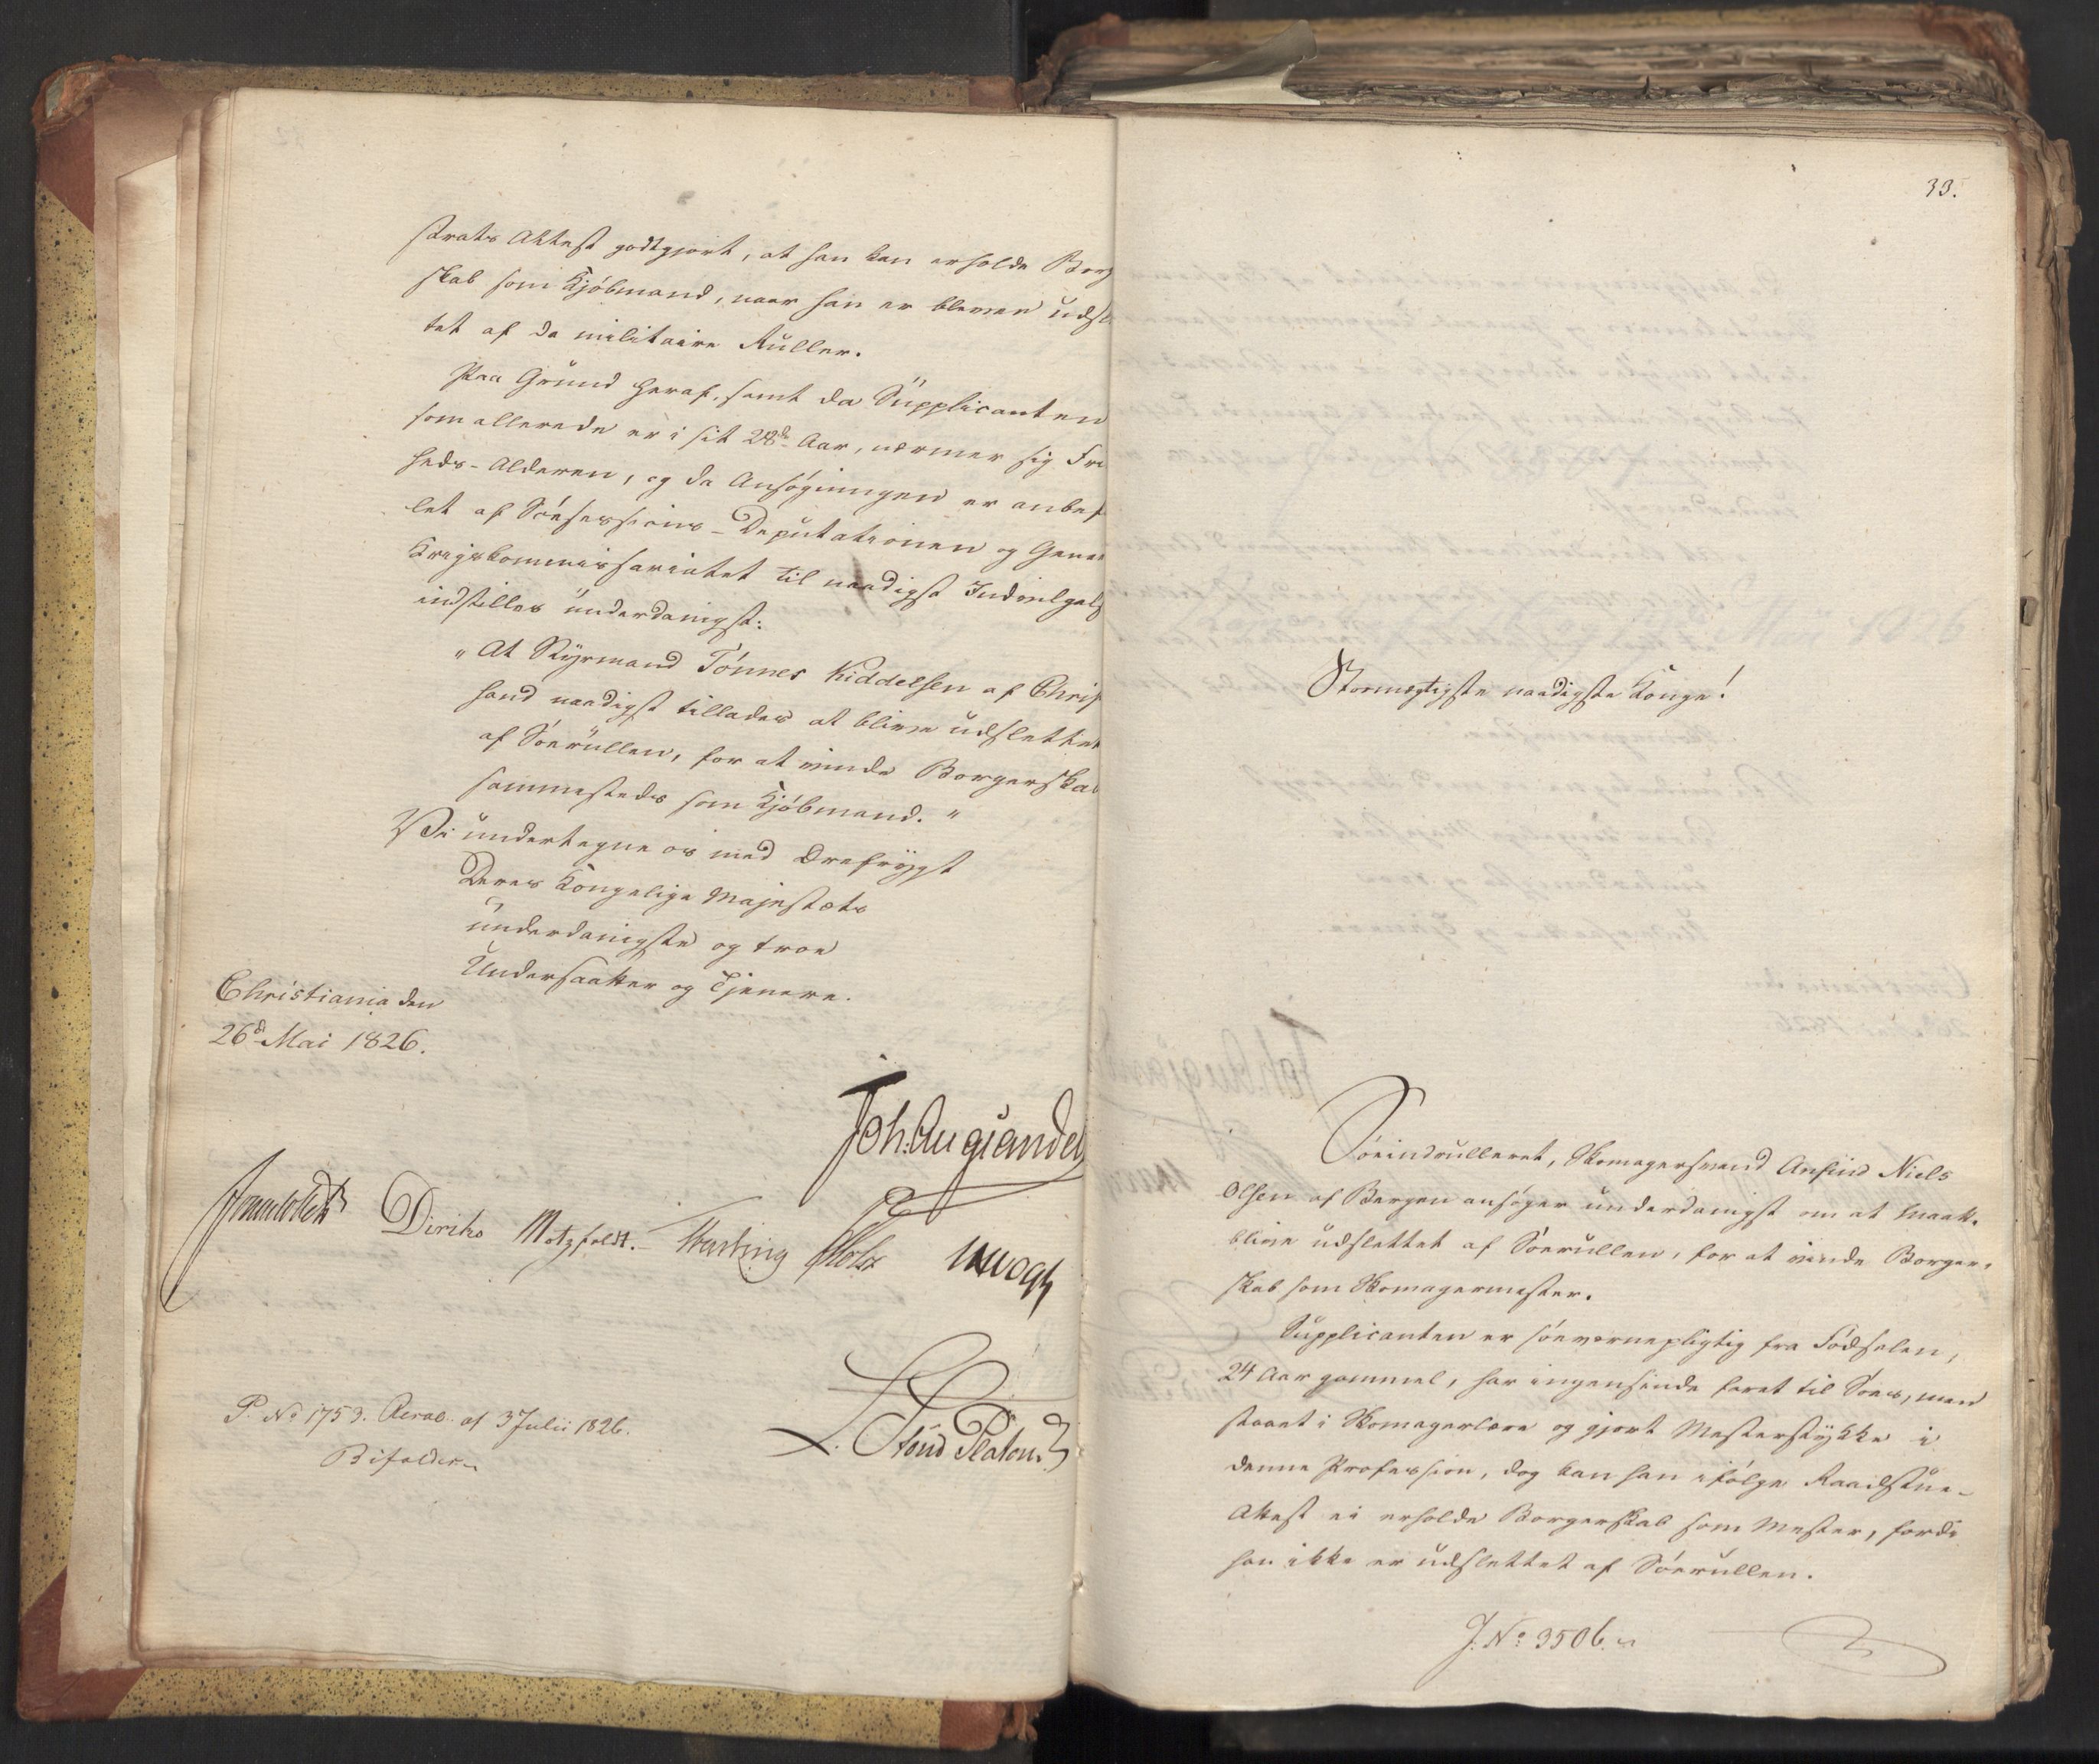 strats Attest godtgjort, at han kan erholde Borg
skab som Kjøbmand, naar han er bleven udsl
tet af de militaire Ruller.
Paa Grund heraf, samt da Supplicanten
som allerede er i sit 28de Aar, nærmer sig Fri
heds-Alderen, og da Ansøgningen er anbef
let af Søesessions-Deputationen og Gener
Krigskommissariatet til naadigst Indvilgels
indstilles underdanigst:
"At Styrmand Tönnes Kiddelsen af Chris
sand naadigst tillades at blive udslettet
af Søerullen, for at vinde Borgerskab
sammesteds som Kjøbmand."
Vi undertegne os med Ærefrygt
Deres Kongelige Majestæts
underdanigste og troe
Undersaatter og Tjenere.
Christiania den
26de Mai 1826.
Joh: Aug: Sandel
Diriks Motzfeldt. Holst
L. Stoud Platou.
P. No 1753. Resol: af 3 Julii 1826.
Bifaldes.
33.
Stormægtigste naadigste Konge!
Søeindrulleret, Skomagersvend Anfind Niels
Olsen af Bergen ansøger underdanigst om at maatte
blive udslettet af Søerullen, for at vinde Borger-
skab som Skomagermester.
Supplicanten er søeværnepligtig fra Fødselen,
24 Aar gammel, har ingensinde faret til Søes, men
staaet i Skomagerlære og gjort Mesterstykke i
denne Profession, dog kan han ifølge Raadstue-
Attest ei erholde Borgerskab som Mester, fordi
han ikke er udslettet af Søerullen.
J. No 3506.